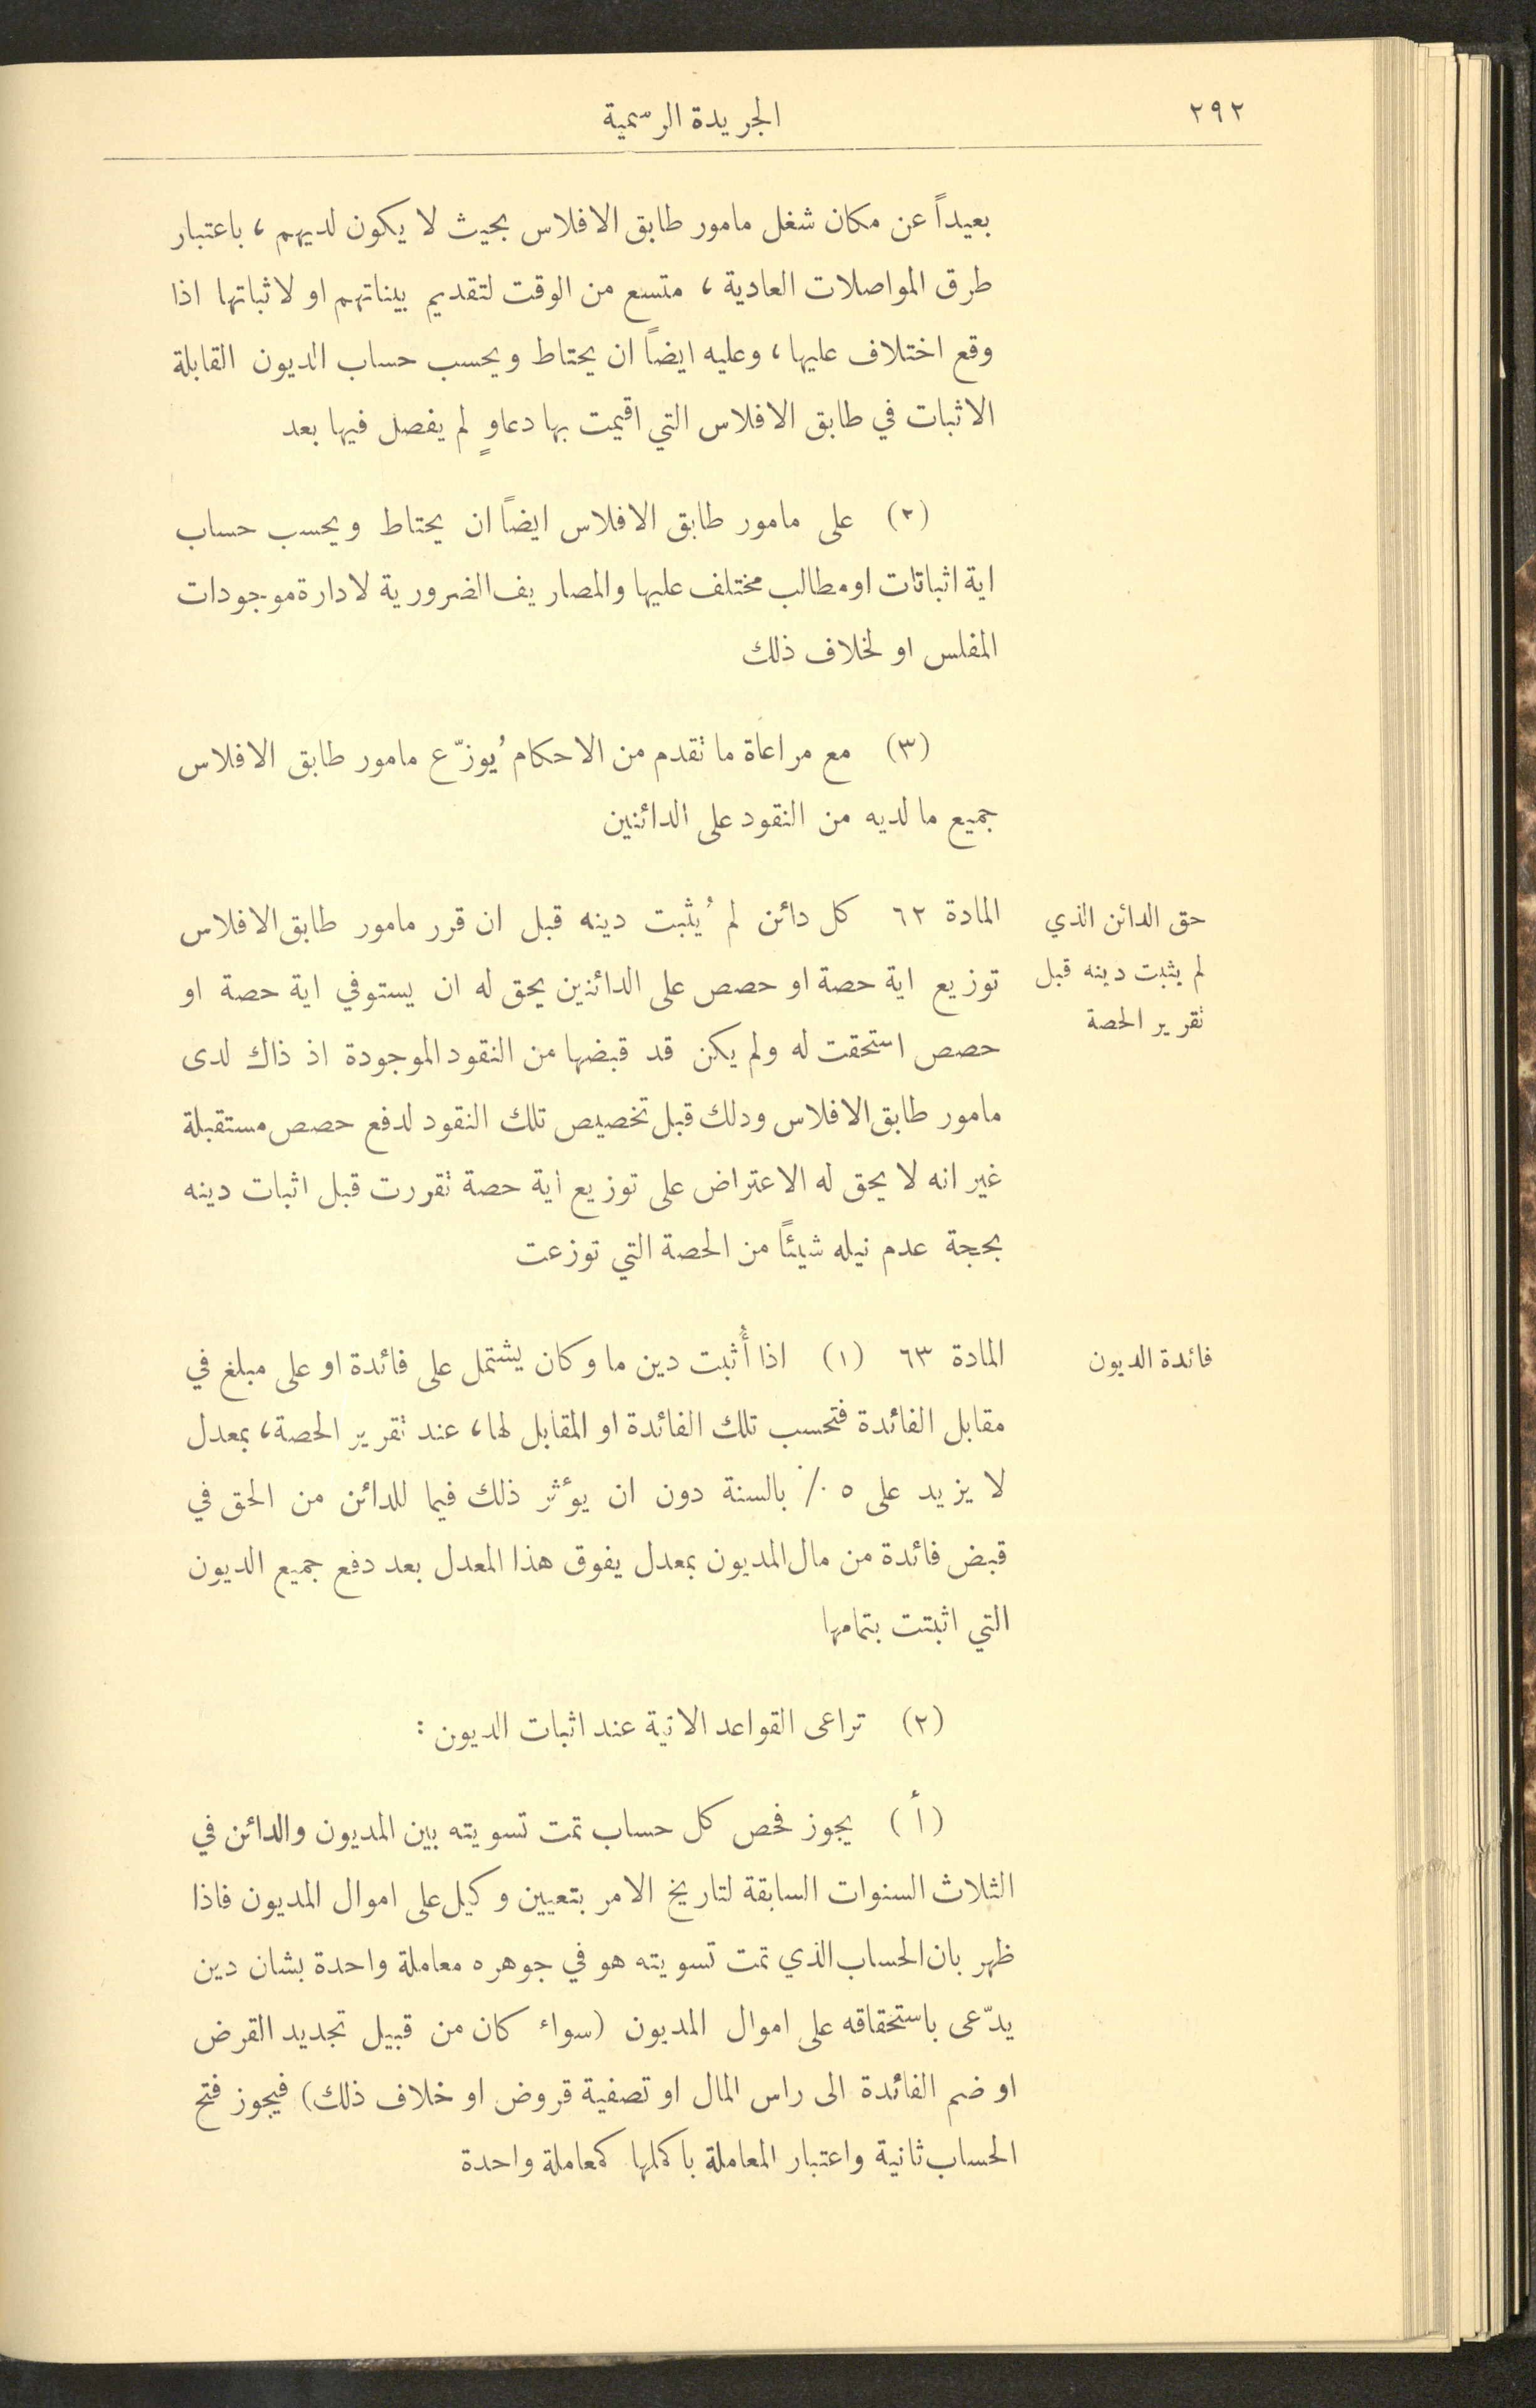 ٢٩٢
الجريدة الرسمية
بعيداً عن مكان شغل مامور طابق الافلاس بحيث لا يكون لديهم، باعتبار
طرق المواصلات العادية، متسع من الوقت لتقديم بيناتهم او لاثباتها اذا
وقع اختلاف عليها، وعليه ايضاً ان يحتاط ويحسب حساب الديون القابلة
الاثبات في طابق الافلاس التي اقيمت بها دعاوٍ لم يفصل فيها بعد
(٢) على مامور طابق الافلاس ايضاً ان يحتاط ويحسب حساب
اية اثباتات او مطالب مختلف عليها والمصاريف الضرورية لادارة موجودات
المفلس او لخلاف ذلك
(٣) مع مراعاة ما تقدم من الاحكام يُوزّع مامور طابق الافلاس
جميع ما لديه من النقود على الدائنين
حق الدائن الذي
لم يثبت دينه قبل
تقرير الحصة
المادة ٦٢ كل دائن لم يُثبت دينه قبل ان قرر مامور طابق الافلاس
توزيع اية حصة او حصص على الدائنين يحق له ان يستوفي اية حصة او
حصص استحقت له ولم يكن قد قبضها من النقود الموجودة اذ ذاك لدى
مامور طابق الافلاس ودلك قبل تخصيص تلك النقود لدفع حصص مستقبلة
غير انه لا يحق له الاعتراض على توزيع اية حصة تقررت قبل اثبات دينه
بحجة عدم نيله شيئاً من الحصة التي توزعت
فائدة الديون
المادة ٦٣ (١) اذا أُثبت دين ما وكان يشتمل على فائدة او على مبلغ في
مقابل الفائدة فتحسب تلك الفائدة او المقابل لها، عند تقرير الحصة، بمعدل
لا يزيد على ٥٪ بالسنة دون ان يؤثر ذلك فيما للدائن من الحق في
قبض فائدة من مال المديون بمعدل يفوق هذا المعدل بعد دفع جميع الديون
التي اثبتت بتمامها
(٢) تراعى القواعد الاتية عند اثبات الديون :
(أ) يجوز فحص كل حساب تمت تسويته بين المديون والدائن في
الثلاث السنوات السابقة لتاريخ الامر بتعيين وكيل على اموال المديون فاذا
ظهر بان الحساب الذي تمت تسويته هو في جوهره معاملة واحدة بشان دين
يدّعى باستحقاقه على اموال المديون (سواء كان من قبيل تجديد القرض
او ضم الفائدة الى راس المال او تصفية قروض او خلاف ذلك) فيجوز فتح
الحساب ثانية واعتبار المعاملة باكملها كمعاملة واحدة